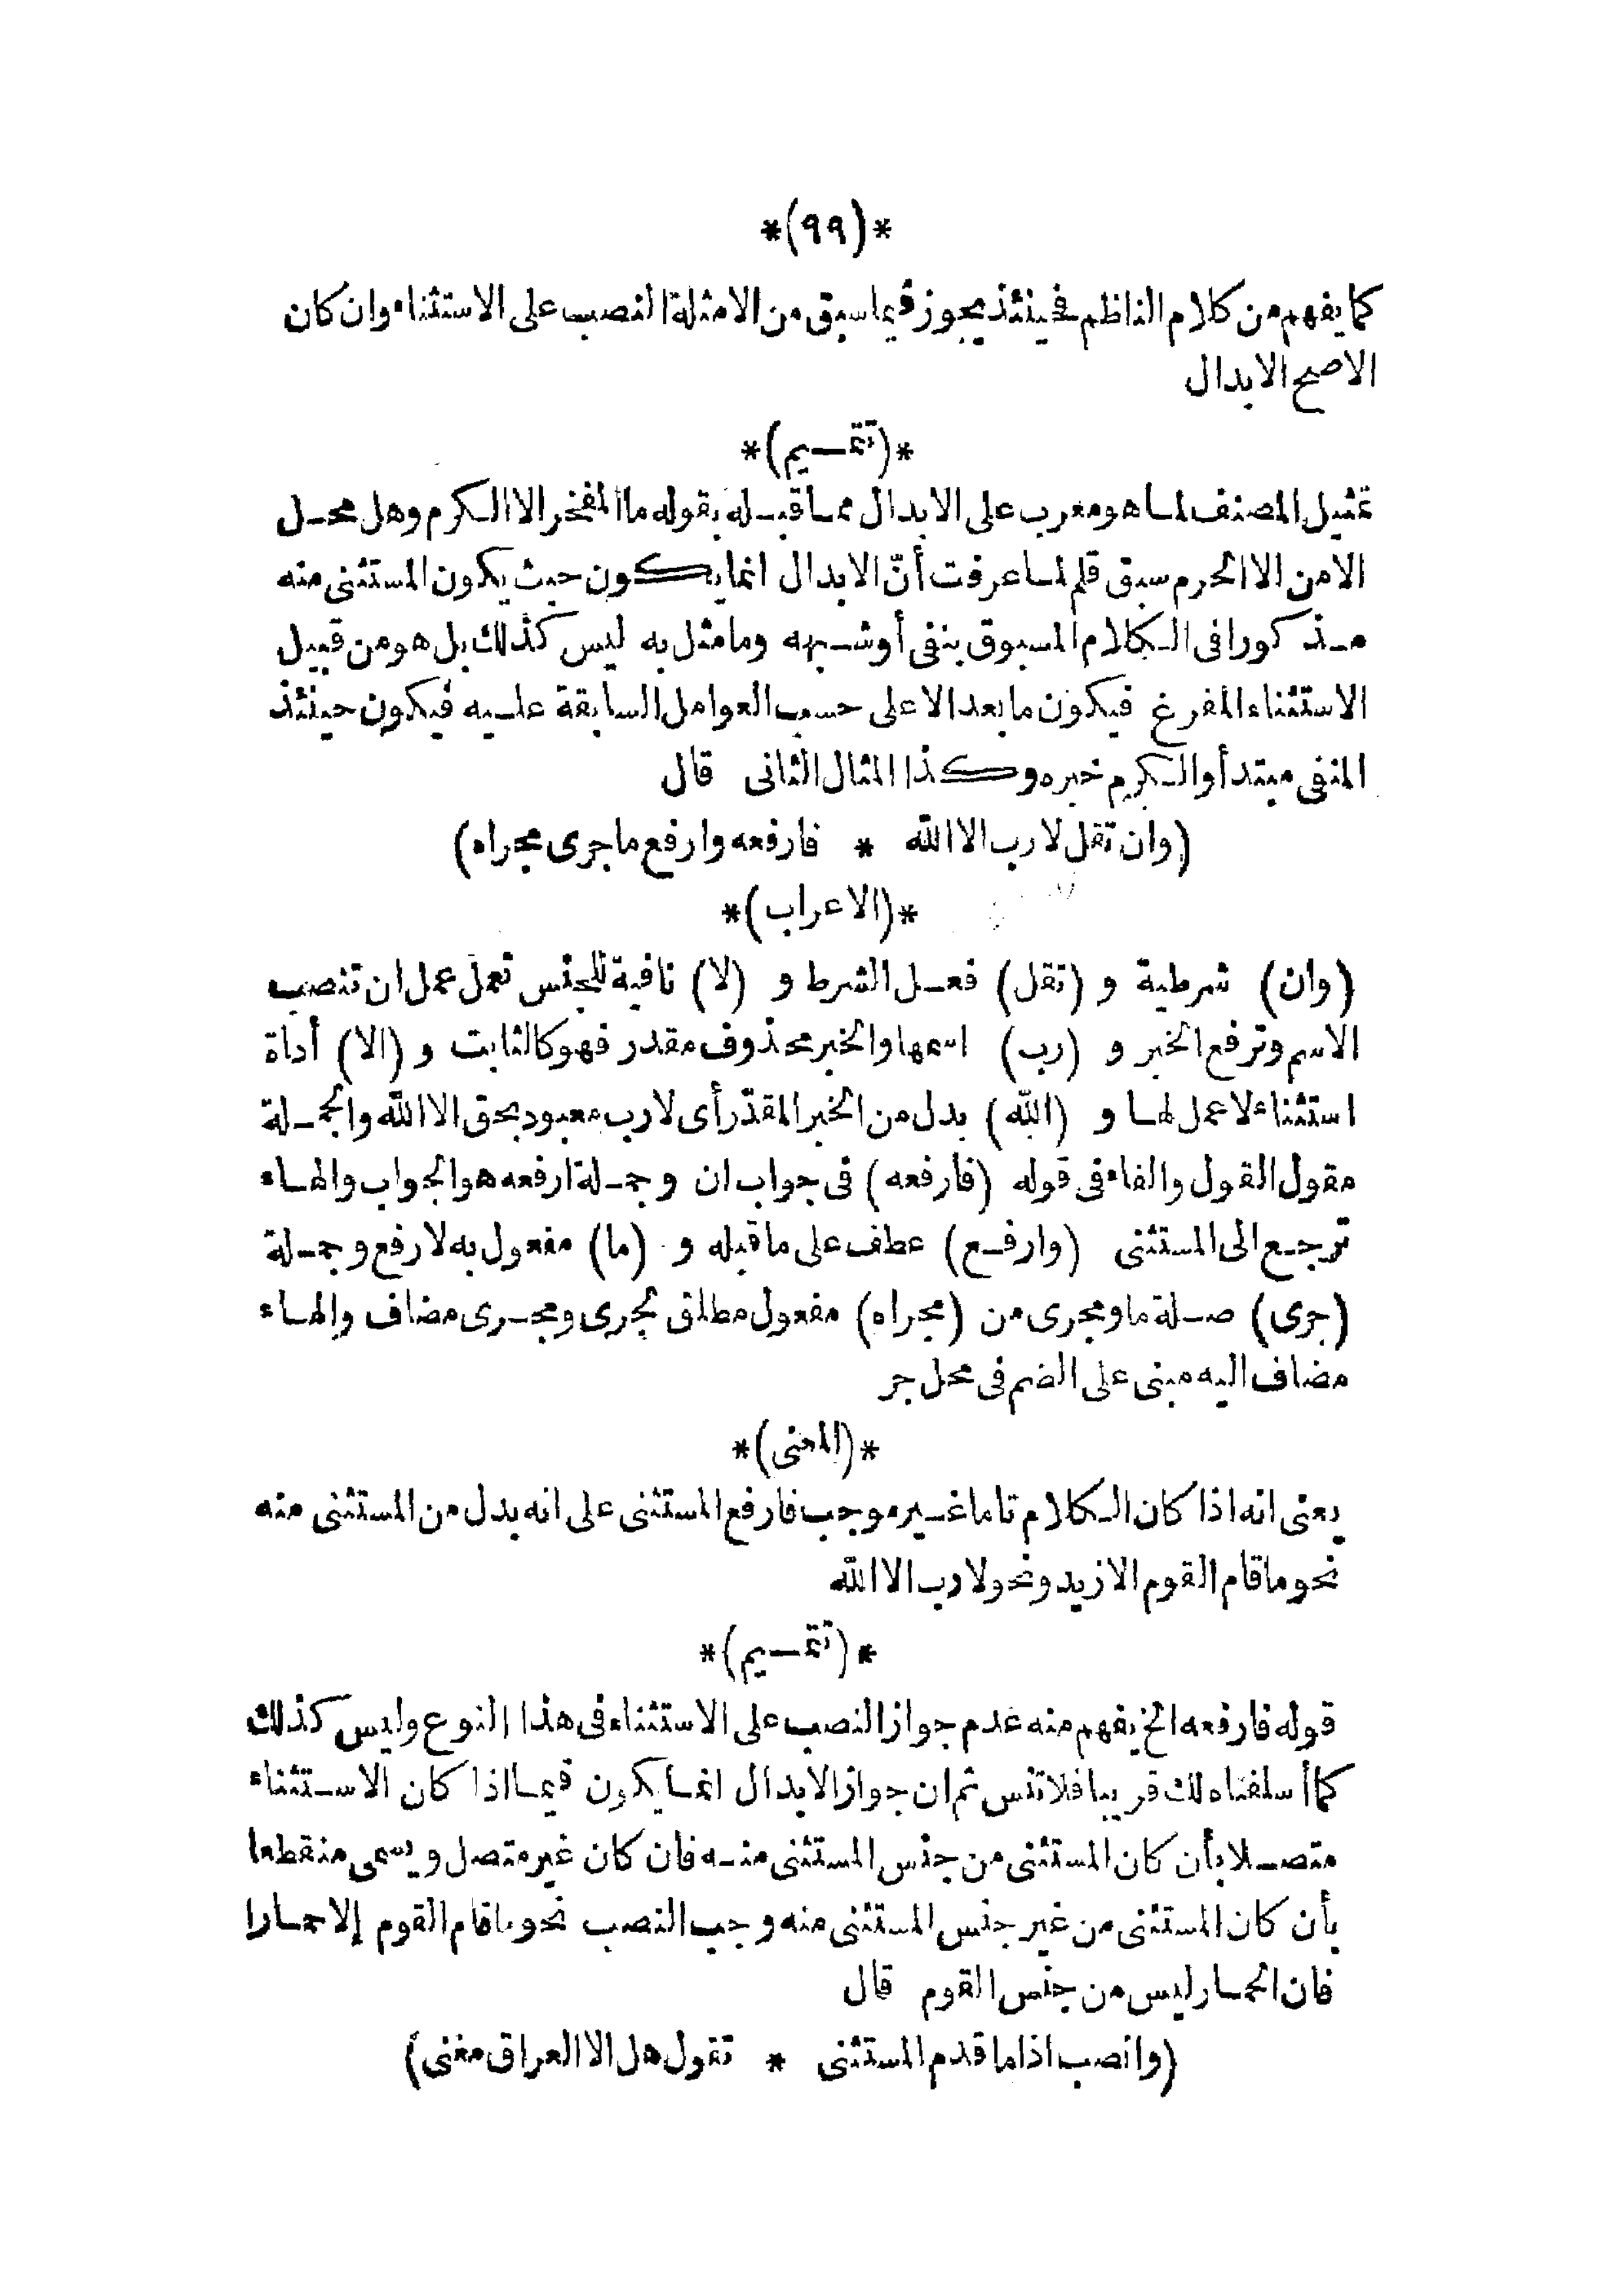 *(٩٩)*
كما يفهم من كلام الناظم فحينئذ يجوز فيما سبق من الامثلة النصب على الاستثناء وان كان
الاصح الابدال
*(تقسيم)*
تمثيل المصنف لما هو معرب على الابدال مما قبله بقوله ما المفخر الا الكرم وهل محل
الامن الا الحرم سبق قلم لما عرفت أنّ الابدال انما يكون حيث يكون المستثنى منه
مذكورا فى الكلام المسبوق بنفى أو شبهه وما مثل به ليس كذلك بل هو من قبيل
الاستثناء المفرغ فيكون ما بعد الا على حسب العوامل السابقة عليه فيكون حينئذ
المنفى مبتدأ والكرم خبره وكذا المثال الثانى قال
(وان تقل لا رب الا الله * فارفعه وارفع ما جرى مجراه)
*(الاعراب)*
(وان) شرطية و (تقل) فعل الشرط و (لا) نافية للجنس تعمل عمل ان تنصب
الاسم وترفع الخبر و (رب) اسمها والخبر محذوف مقدر فهو كالثابت و (الا) أداة
استثناء لا عمل لها و (الله) بدل من الخبر المقدّر أى لا رب معبود بحق الا الله والجملة
مقول القول والفاء فى قوله (فارفعه) فى جواب ان وجملة ارفعه هو الجواب والهاء
ترجع الى المستثنى (وارفع) عطف على ما قبله و (ما) مفعول به لارفع وجملة
(جرى) صلة ما ومجرى من (مجراه) مفعول مطلق لجرى ومجرى مضاف والهاء
مضاف اليه مبنى على الضم فى محل جر
*(المعنى)*
يعنى انه اذا كان الكلام تاما غير موجب فارفع المستثنى على انه بدل من المستثنى منه
نحو ما قام القوم الا زيد ونحو لا رب الا الله
*(تقسيم)*
قوله فارفعه الخ يفهم منه عدم جواز النصب على الاستثناء فى هذا النوع وليس كذلك
كما أسلفناه لك قريبا فلا تنس ثم ان جواز الابدال انما يكون فيما اذا كان الاستثناء
متصلا بأن كان المستثنى من جنس المستثنى منه فان كان غير متصل ويسمى منقطعا
بأن كان المستثنى من غير جنس المستثنى منه وجب النصب نحو ما قام القوم إلا حمارا
فان الحمار ليس من جنس القوم قال
(وانصب اذا ما قدم المستثنى * تقول هل الا العراق مغنى)